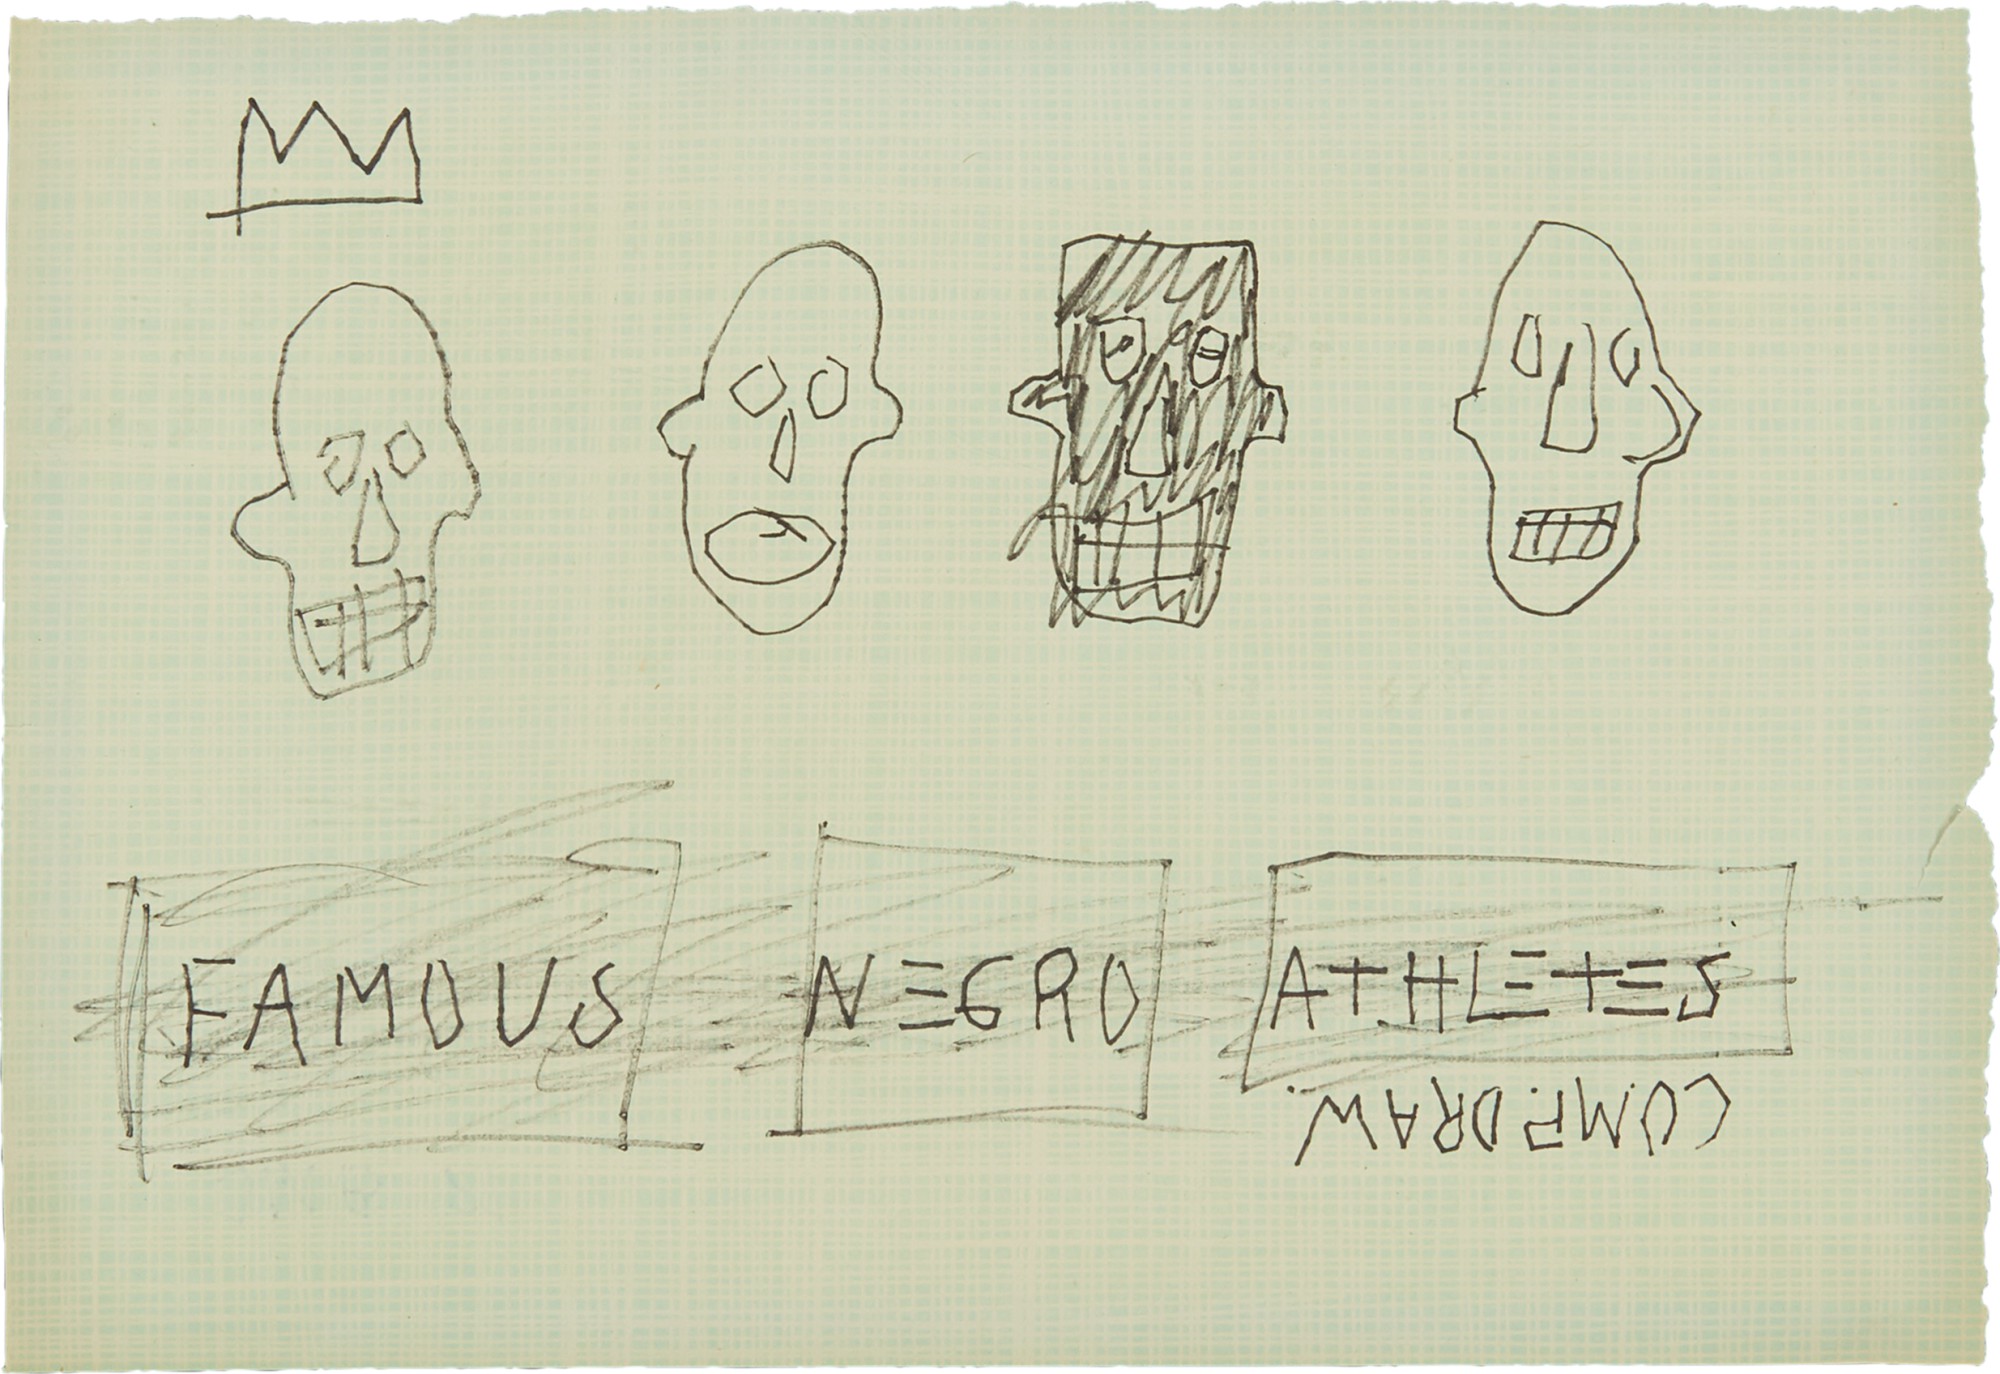 FAMOUS NEGRO ATHLETES
COMP. DRAW.